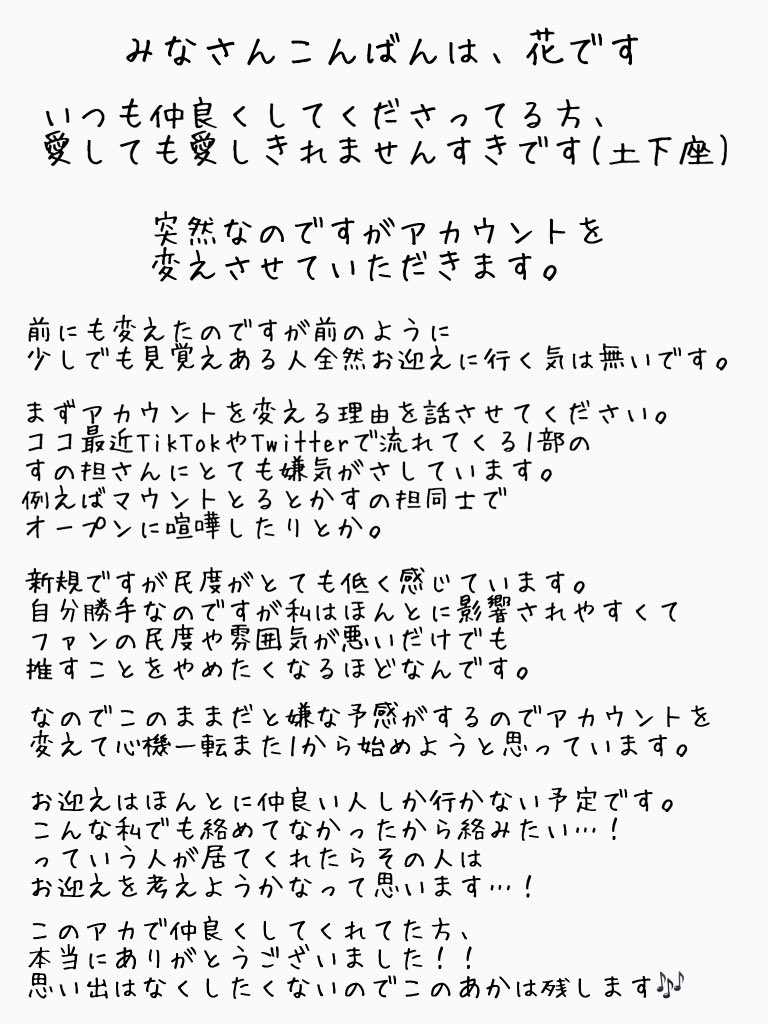 みなさんこんばんは、花です
いつも仲良くしてくださってる方、
愛しても愛しきれませんすきです(土下座)
突然なのですがアカウントを
変えさせていただきます。
前にも変えたのですが前のように
少しでも見覚えある人全然お迎えに行く気は無いです。
まずアカウントを変える理由を話させてください。
ココ最近TikTokやTwitterで流れてくる1部の
すの担さんにとても嫌気がさしています。
例えばマウントとるとかすの担同士で
オープンに喧嘩したりとか。
新規ですが民度がとても低く感じています。
自分勝手なのですが私はほんとに影響されやすくて
ファンの民度や雰囲気が悪いだけでも
推すことをやめたくなるほどなんです。
なのでこのままだと嫌な予感がするのでアカウントを
変えて心機一転また1から始めようと思っています。
お迎えはほんとに仲良い人しか行かない予定です。
こんな私でも絡めてなかったから絡みたい…！
っていう人が居てくれたらその人は
お迎えを考えようかなって思います…！
このアカで仲良くしてくれてた方、
本当にありがとうございました！！
思い出はなくしたくないのでこのあかは残します🎶